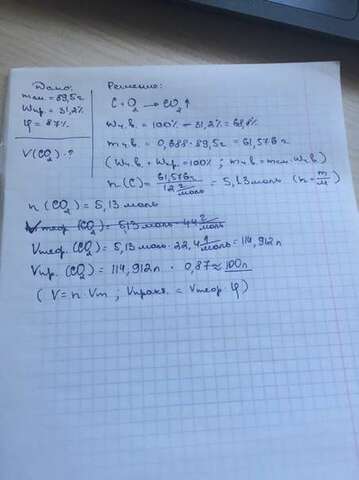 Дано:
mсм. = 89,5г
Wпр. = 31,2%
φ = 87%
V(CO₂) - ?
Решение:
C + O₂ → CO₂↑
Wч.в. = 100% - 31,2% = 68,8%
mч.в. = 0,688 · 89,5г = 61,576г
(Wч.в. + Wпр. = 100% ; mч.в. = mсм. · Wч.в.)
n(C) = 61,576г / 12 г/моль = 5,13моль (n = m/M)
n(CO₂) = 5,13 моль
Vтеор. (CO₂) = 5,13 моль · 44 г/моль
Vтеор. (CO₂) = 5,13 моль · 22,4 л/моль = 114,912л
Vпр. (CO₂) = 114,912л · 0,87 ≈ 100л
(V = n · Vm ; Vпракт. = Vтеор. · φ)